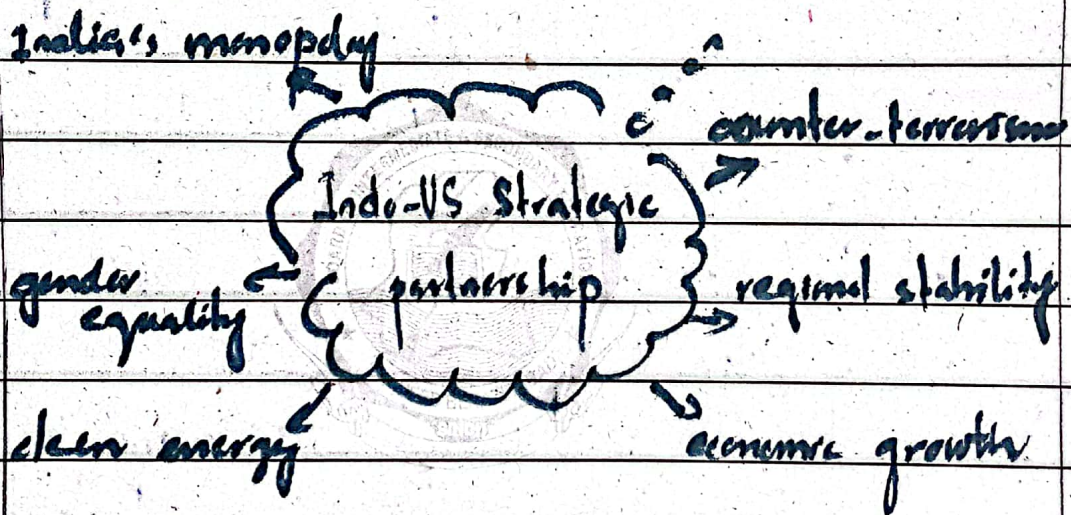 India's monopoly
counter-terrorism
Indo-US Strategic
partnership
gender
equality
regional stability
clean energy
economic growth